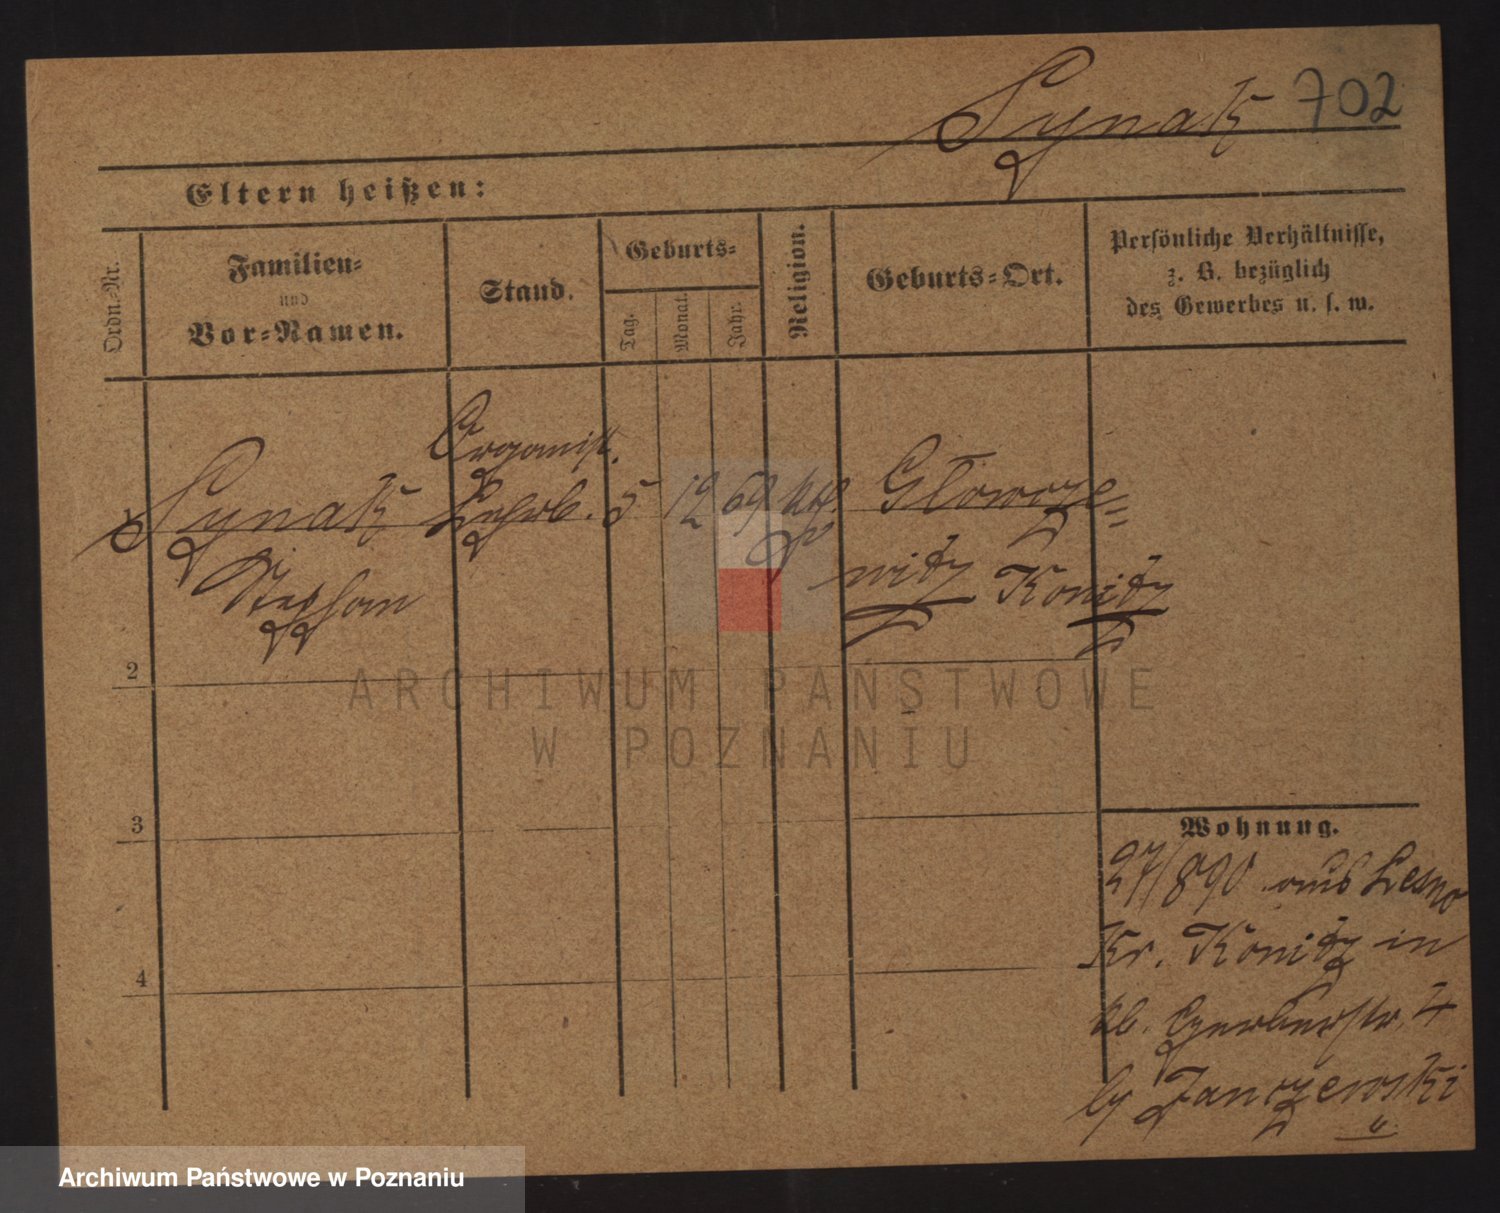 Synak 702
Eltern heißen:
Ordn.-Nr.
Familien-
und
Vor-Namen.
Stand.
Geburts-
Tag.
Monat.
Jahr.
Religion.
Geburts-Ort.
Persönliche Verhältnisse,
z. B. bezüglich
des Gewerbes u. s. w.
Organist.
1 Synak Lehrb. 5 12 69 kth. Glowcze=
Stephan witz Konitz
2
3
4
Wohnung.
27/890 aus Lesno
Kr. Konitz in
Gerberstr. 4
by Janczewski
ARCHIWUM PAŃSTWOWE
W POZNANIU
Archiwum Państwowe w Poznaniu